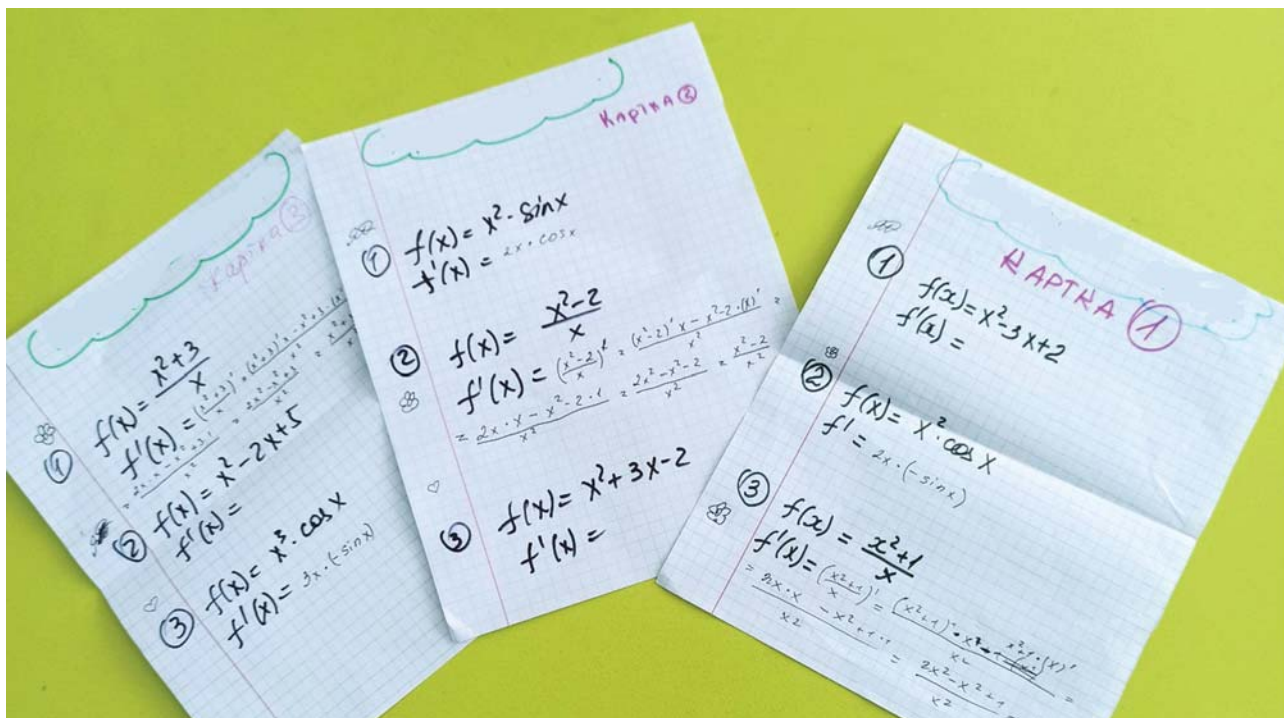 Картка 3
① f(x) = (x²+3)/x
f'(x) = ((x²+3)/x)' = ((x²+3)'·x - x²+3·(x)'
② f(x) = x² - 2x + 5
f'(x) =
③ f(x) = x³ · cos x
f'(x) = 3x · (-sin x)
Картка ②
① f(x) = x² - sin x
f'(x) = 2x · cos x
② f(x) = (x²-2)/x
f'(x) = ((x²-2)/x)' = ((x²-2)' x - x²-2·(x)')/x² =
= (2x·x - x²-2·1)/x² = (2x²-x²-2)/x² = (x²-2)/x²
③ f(x) = x² + 3x - 2
f'(x) =
КАРТКА ①
① f(x) = x² - 3x + 2
f'(x) =
② f(x) = x² · cos x
f' = 2x · (-sin x)
③ f(x) = (x²+1)/x
f'(x) = ((x²+1)/x)' =
= (2x·x - x²+1·1)/x² = (2x²-x²+1)/x² =